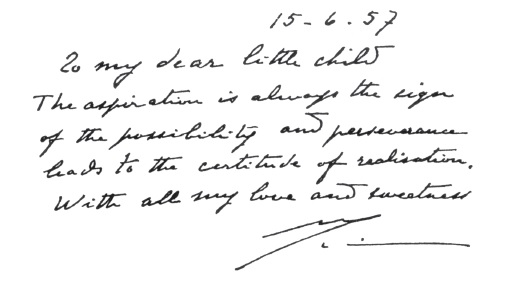 15-6.57
To my dear little child
The aspiration is always the sign
of the possibility and perseverance
leads to the certitude of realisation.
With all my love and sweetness